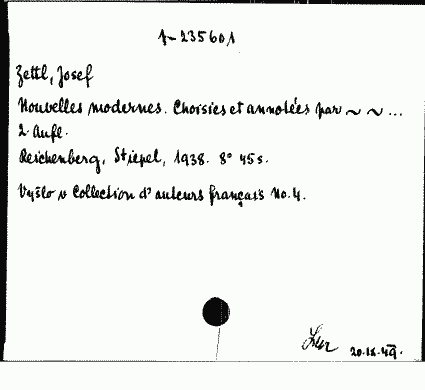 1-235601
Zettl, Josef
Nouvelles modernes. Choisies et annotées par ~ ~ ...
2. Aufl.
Reichenberg, Stiepel, 1938. 8° 45 s.
Vyšlo v Collection d'auteurs français No. 4.